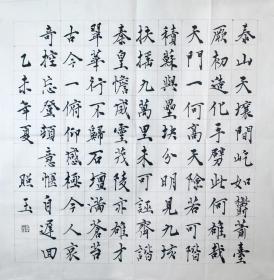 泰山天壤間屹如鬱蕭臺
厥初造化手劈此何雄哉
天門一何高天險若可階
積蘇與壘塊分明見九垓
扶搖九萬里未可誣齊諧
秦皇憺威靈茂陵亦雄才
翠華行不歸石壇滿蒼苔
古今一俯仰感極令人哀
奇探忘登頓意愜自遲回
乙未年夏 照玉